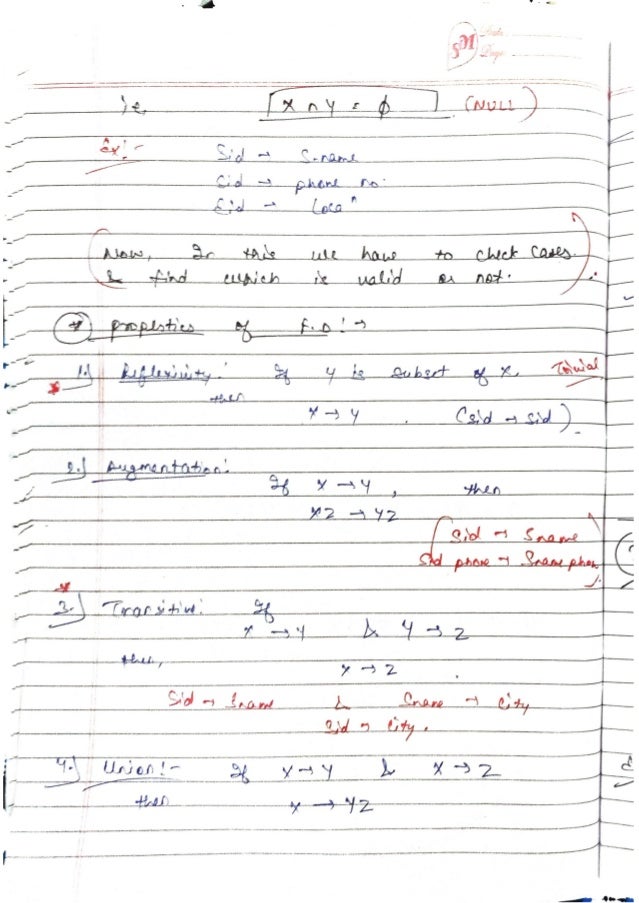 SM Date
Page
ie x ∩ y = φ (NULL)
Ex:- Sid → S.name
Sid → phone no.
Sid → Locaⁿ
Now, In this we have to check cases.
& find which is valid or not.
* properties of F.D! →
1.) Reflexivity: If y is subset of x. Trivial
then
x → y . (sid → sid)
2.) Augmentation:
If x → y , then
xz → yz
Sid → Sname
Sid phone → Sname phone
3.) Transitive: If
x → y & y → z
then, x → z .
Sid → Sname & Sname → City
Sid → City.
4.) Union:- If x → y & x → z
then x → yz